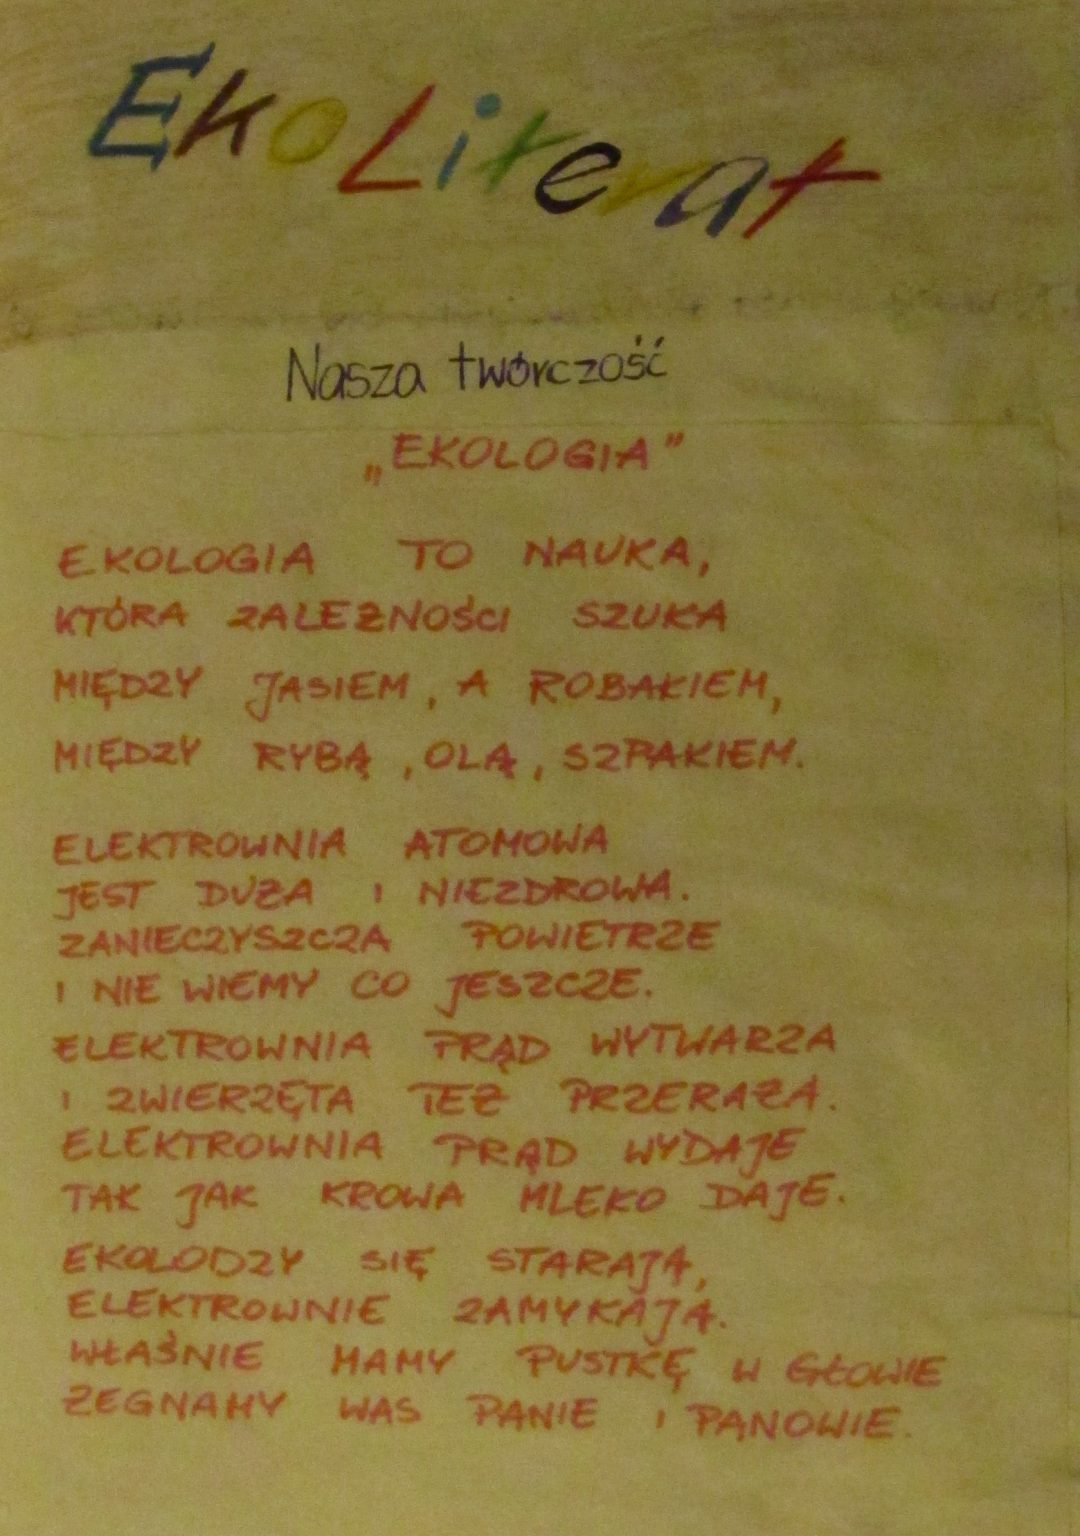 EkoLiterat
Nasza twórczość
„EKOLOGIA"
EKOLOGIA TO NAUKA,
KTÓRA ZALEŻNOŚCI SZUKA
MIĘDZY JASIEM, A ROBAKIEM,
MIĘDZY RYBĄ, OLĄ, SZPAKIEM.
ELEKTROWNIA ATOMOWA
JEST DUŻA I NIEZDROWA.
ZANIECZYSZCZA POWIETRZE
I NIE WIEMY CO JESZCZE.
ELEKTROWNIA PRĄD WYTWARZA
I ZWIERZĘTA TEŻ PRZERAŻA.
ELEKTROWNIA PRĄD WYDAJE
TAK JAK KROWA MLEKO DAJE.
EKOLODZY SIĘ STARAJĄ,
ELEKTROWNIE ZAMYKAJĄ.
WŁAŚNIE MAMY PUSTKĘ W GŁOWIE
ŻEGNAMY WAS PANIE I PANOWIE.